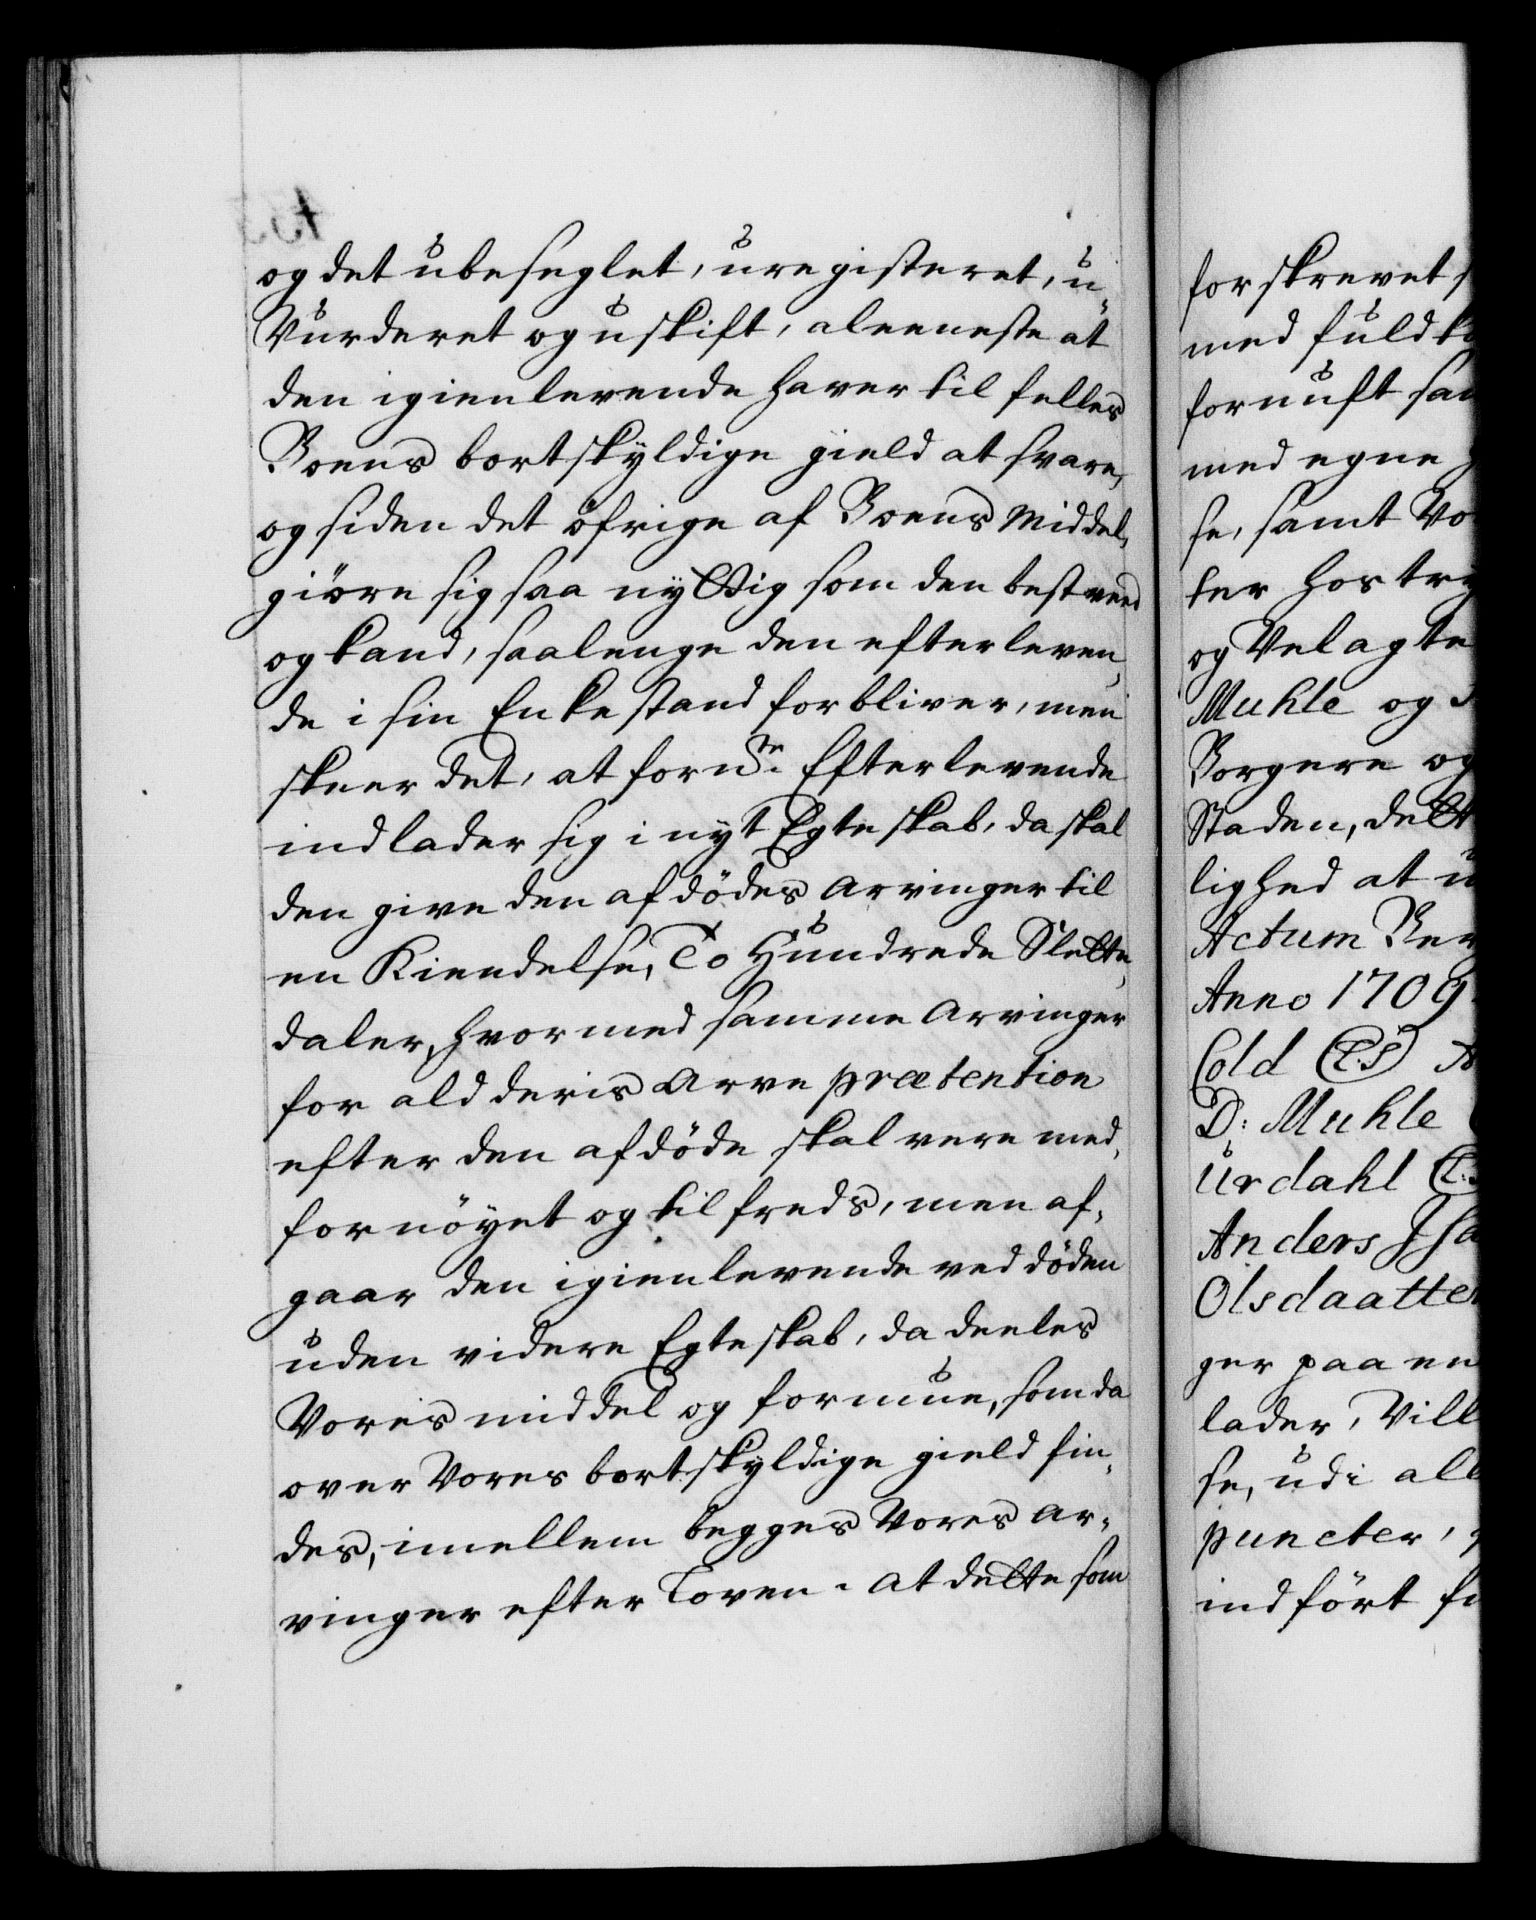 og det ubeseglet, uregisteret, u„
Vurderet og uskift, aleeneste at
den igienlevende haver til felles
Boens bortskyldige gield at svare,
og siden det öfrige af Boens Middel,
giöre sig saa nyttig som den best veed
og kand, saalenge den efterleven„
de i sin Enkestand forbliver, men
skeer det, at fornte Efterlevende
indlader sig i nyt Egteskab, da skal
den give den afdödes Arvinger til
en Kiendelse, To Hundrede Slette„
daler, hvormed samme Arvinger
for ald deris Arve prætention
efter den afdöde skal vere med,
fornöyet og tilfreds, men af„
gaar den igienlevende ved döden
uden videre Egteskab, da deeles
Voris middel og formue, som da
over Vores bortskyldige gield fin„
des, imellem begges Vores Ar„
vinger efter Loven. At dette som
forskrevet
med fuldk
fornuft sa
med egne
se, samt Vo
ter hos try
og Velagte
Muhle og
Borgere og
Staden, dett
lighed at u
Actum Ber
Anno 1709
Cold (L.S)
D: Muhle
Urdahl (L.
Anders Isa
Olsdaatter
ger paa en
lader, Vill
se, udi all
puncter,
indfört